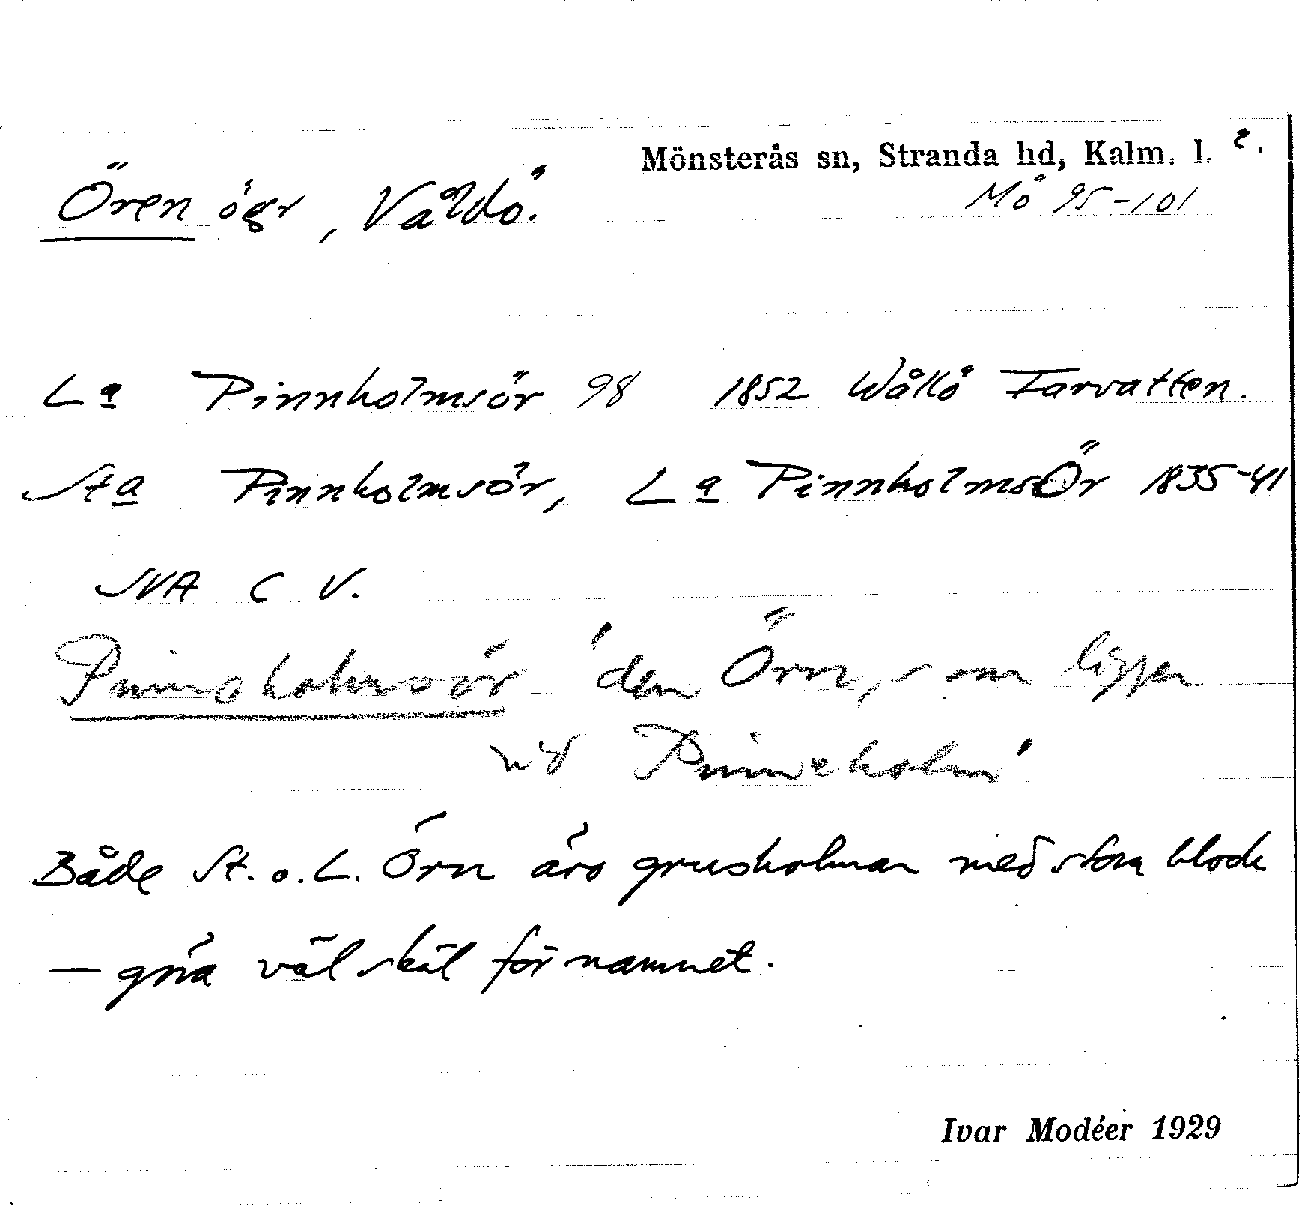 Mönsterås sn, Stranda hd, Kalm. l. 2.
Ören ögr, Våldö.
Mö 95-101
La Pinnholmsör 98 1852 Wållö Farvatten.
Sta Pinnholmsör, La PinnholmsÖr 1835-41
SVA C V.
Pinnsholmsör 'den Örn, som ligger
vid Pinneholm'
Både St. o. L. Örn äro grusholmar med stora block
— göra väl skäl för namnet.
Ivar Modéer 1929